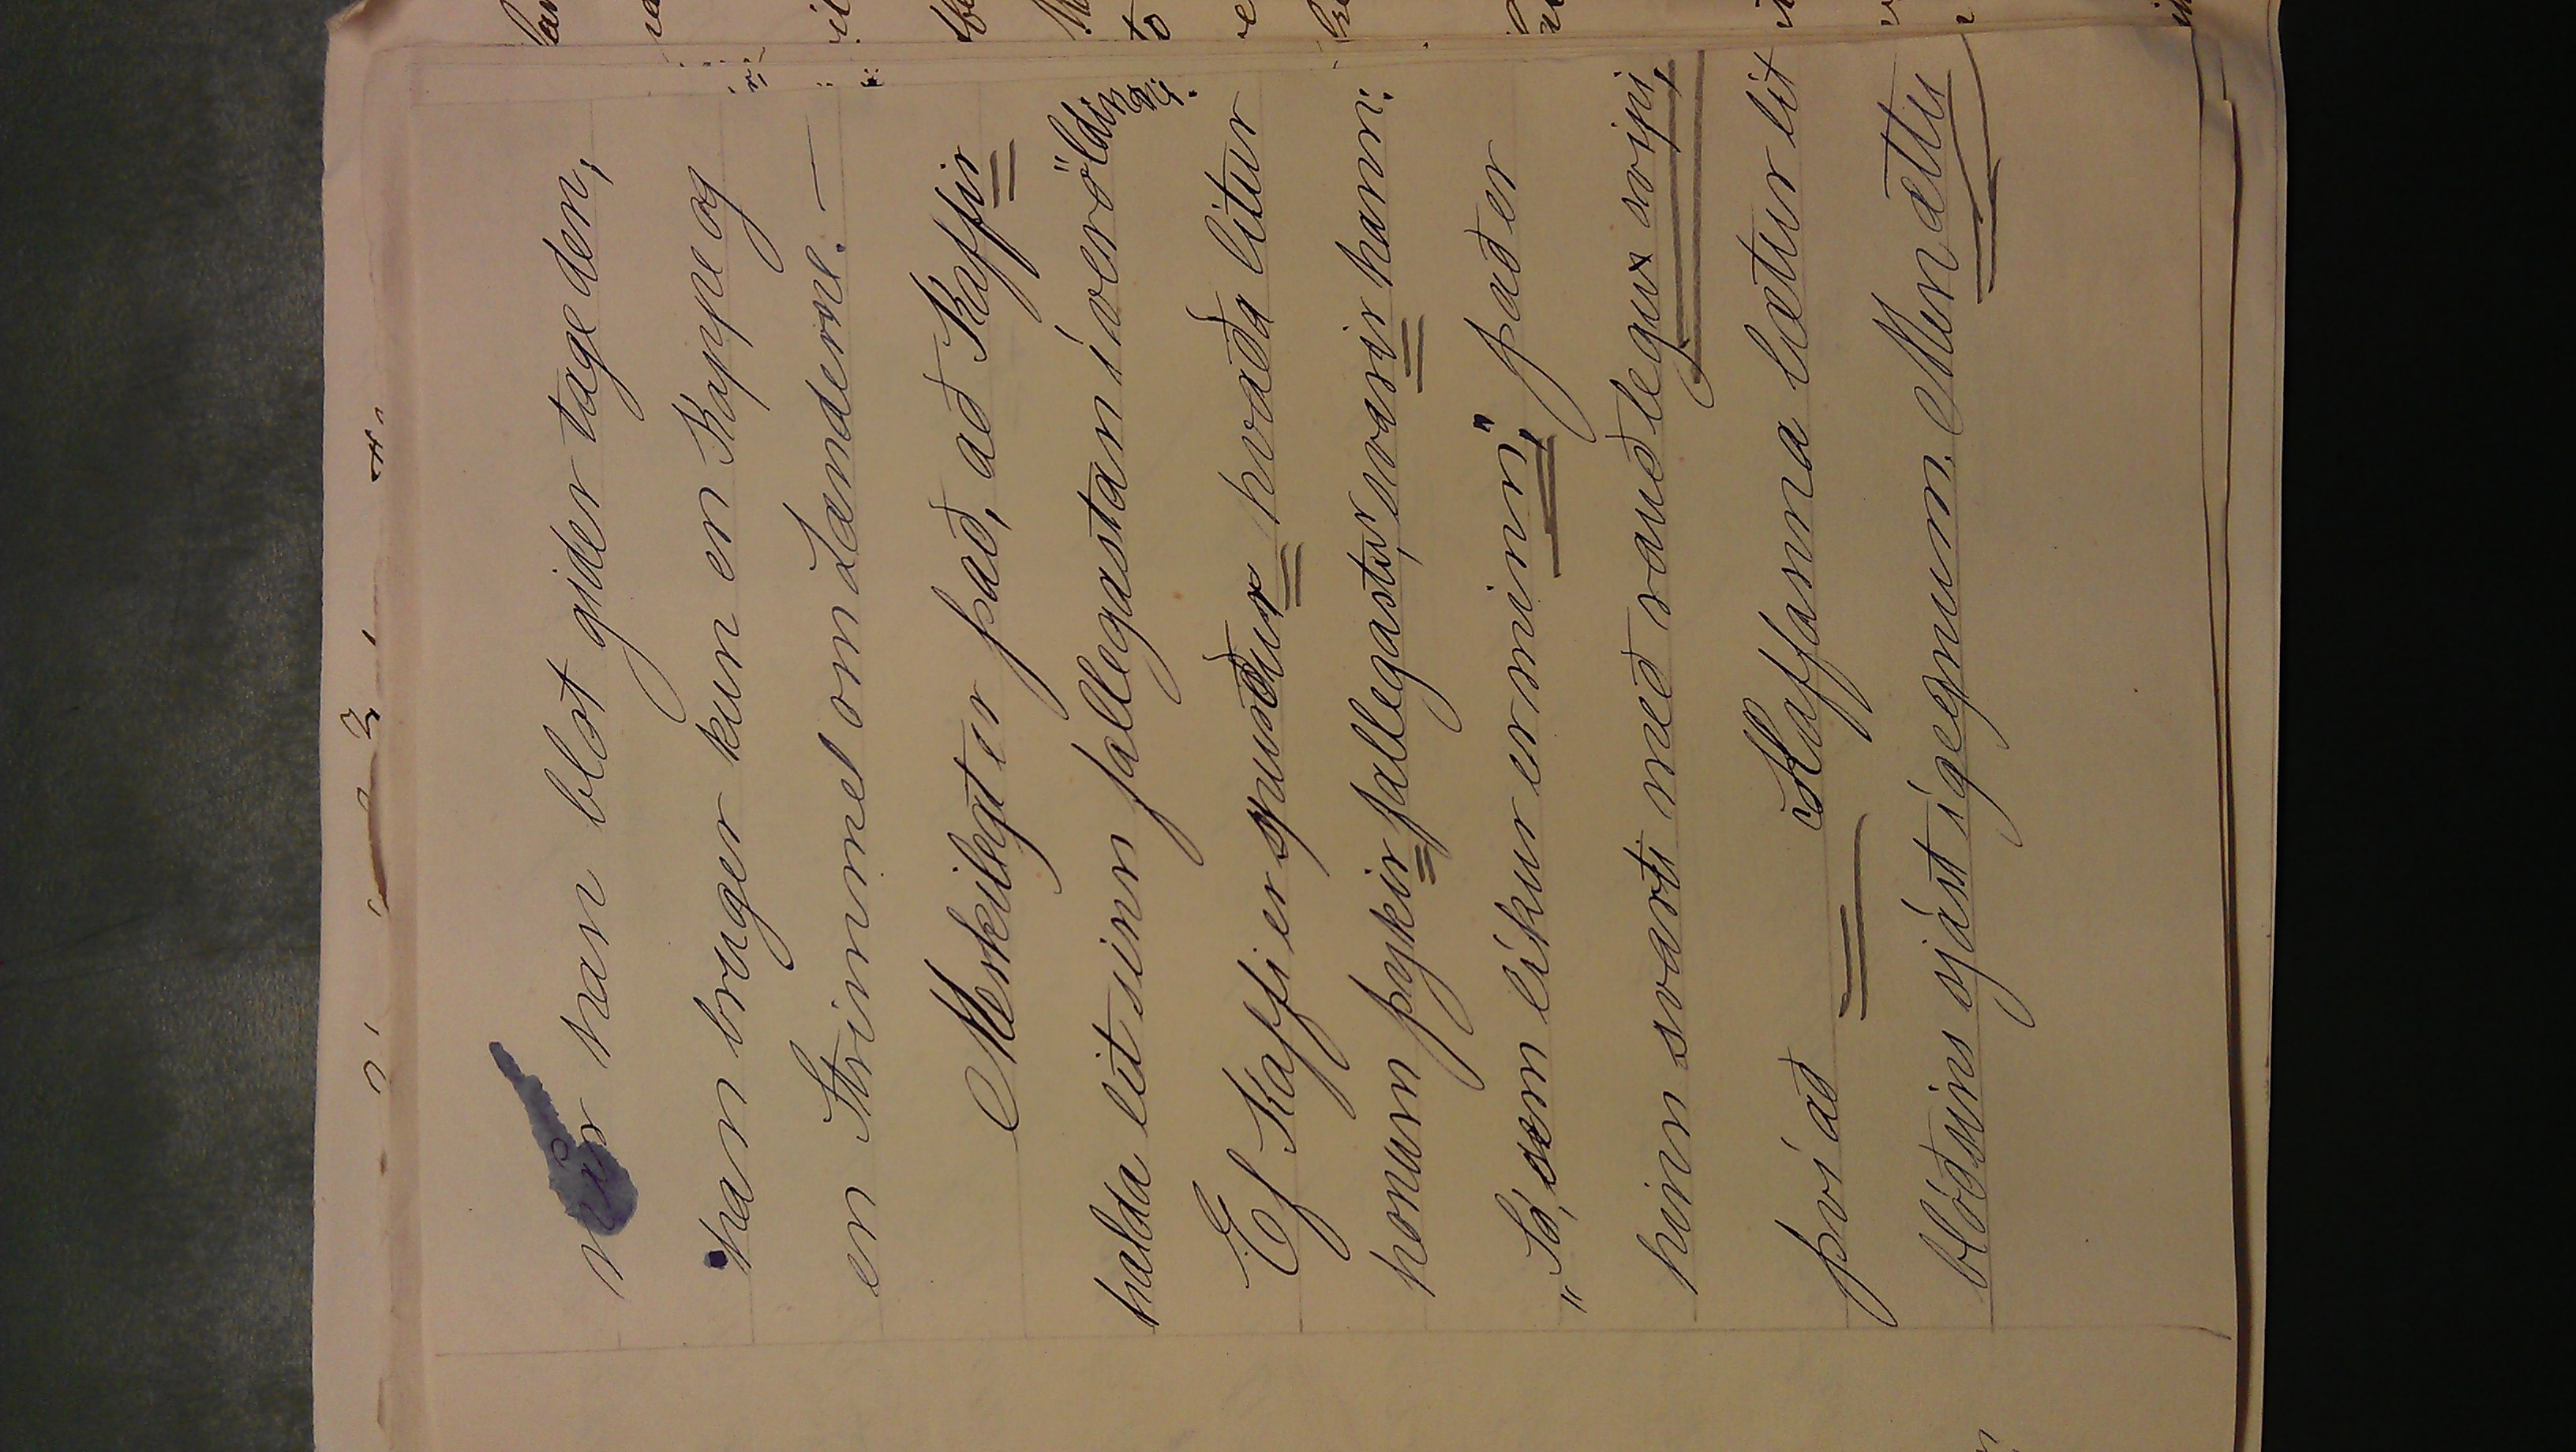 når man blot gider tage den,
man bruger kun en Kappe og
en Strimmel om Lænderne. —
Merkilegt er það, að Kaffir
halda lit sinn fallegastan í veröldinni.
Ef Kaffi er spurður hvaða litur
honum þykir fallegastur, svarir hann:
„Sá, sem líkur er mínum," það er
hinn svarti með rauðlegum svip,
því að Kaffanna lætur lit
blóðsins sjást ígegnum. Mundætlu